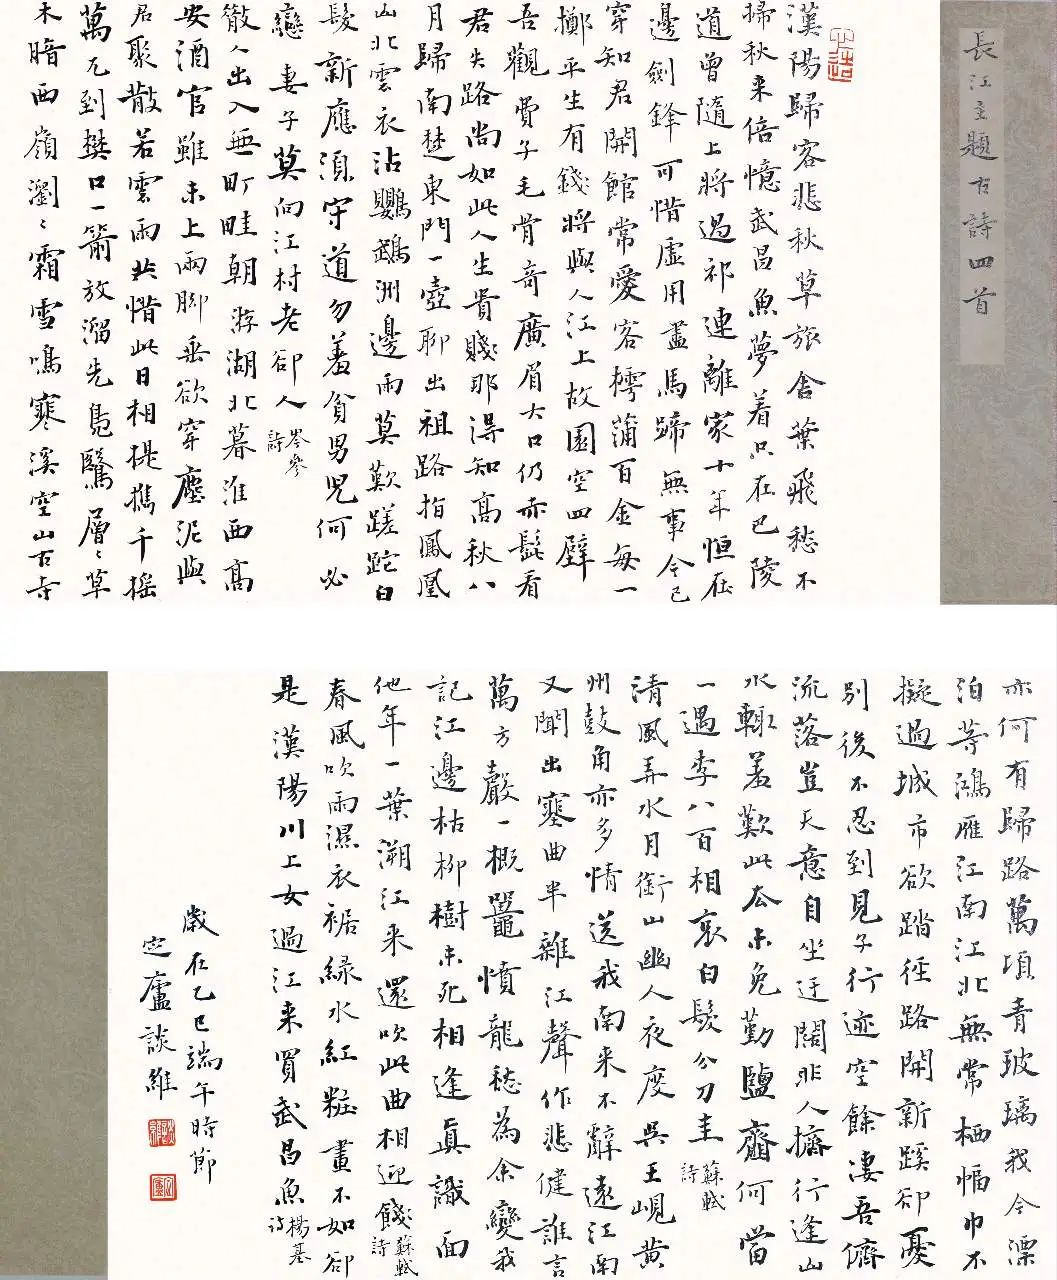 長江主題古詩四首
漢陽歸客悲秋草旅舍葉飛愁不
掃秋来倍憶武昌魚夢着只在巴陵
道曾隨上將過祁連離家十年恒在
邊劍鋒可惜虛用盡馬蹄無事今已
穿知君開館常愛客樗蒲百金每一
擲平生有錢將與人江上故園空四壁
吾觀費子毛骨奇廣眉大口仍赤髭看
君失路尚如此人生貴賤那得知高秋八
月歸南楚東門一壺聊出祖路指鳳凰
山北雲衣沾鸚鵡洲邊雨莫歎蹉跎白
髮新應須守道勿羞貧男兒何必
戀妻子莫向江村老卻人 岑參詩
散人出入無町畦朝游湖北暮淮西高
安酒官雖未上兩脚垂欲穿塵泥與
君聚散若雲雨共惜此日相提攜千搖
萬兀到樊口一箭放溜先鳧鷖層〻草
木暗西嶺瀏〻霜雪鳴寒溪空山古寺
亦何有歸路萬頃青玻璃我今漂
泊等鴻雁江南江北無常栖幅巾不
擬過城市欲踏徑路開新蹊卻憂
別後不忍到見子行迹空餘凄吾儕
流落豈天意自坐迂闊非人擠行逢山
水輒羞歎此去未免勤鹽齏何當
一遇李八百相哀白髮分刀圭 蘇軾詩
清風弄水月銜山幽人夜度吳王峴黃
州鼓角亦多情送我南来不辭遠江南
又聞出塞曲半雜江聲作悲健誰言
萬方嚴一概鼉憤龍愁為余變我
記江邊枯柳樹未死相逢真識面
他年一葉溯江来還吹此曲相迎餞 蘇軾詩
春風吹雨濕衣裾綠水紅粧畫不如卻
是漢陽川上女過江来買武昌魚 楊基詩
歲在乙巳端午時節
定廬談維